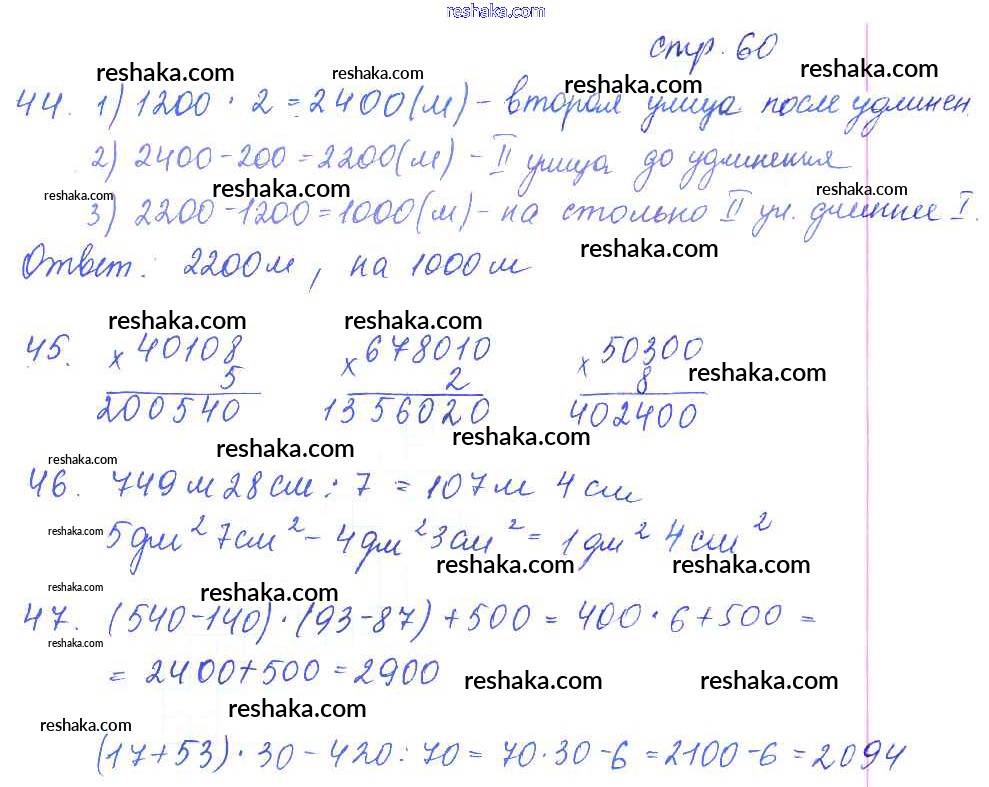 reshaka.com
стр. 60
reshaka.com reshaka.com reshaka.com reshaka.com
44. 1) 1200 · 2 = 2400 (м) - вторая улица после удлинен.
2) 2400 - 200 = 2200 (м) - II улица до удлинения
reshaka.com reshaka.com reshaka.com
3) 2200 - 1200 = 1000 (м) - на столько II ул. длиннее I.
reshaka.com
Ответ: 2200 м, на 1000 м
reshaka.com reshaka.com
45. × 40108 × 678010 × 50300
5 2 8 reshaka.com
200540 1356020 402400
reshaka.com reshaka.com
reshaka.com
46. 749 м 28 см : 7 = 107 м 4 см
reshaka.com
5 дм² 7 см² - 4 дм² 3 см² = 1 дм² 4 см²
reshaka.com reshaka.com
reshaka.com reshaka.com
47. (540 - 140) · (93 - 87) + 500 = 400 · 6 + 500 =
reshaka.com
= 2400 + 500 = 2900
reshaka.com reshaka.com
reshaka.com reshaka.com
(17 + 53) · 30 - 420 : 70 = 70 · 30 - 6 = 2100 - 6 = 2094